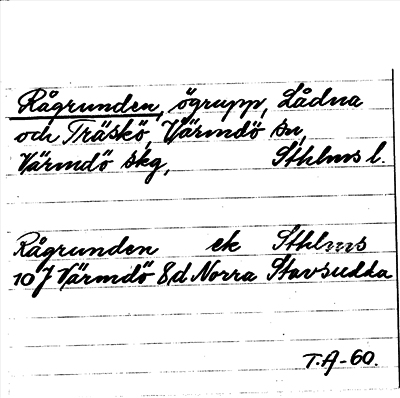 Rågrunden, ögrupp, Lådna
och Träskö, Värmdö sn,
Värmdö skg, Sthlms l.
Rågrunden ek Sthlms
10 J Värmdö 8d Norra Stavsudda
T.A-60.